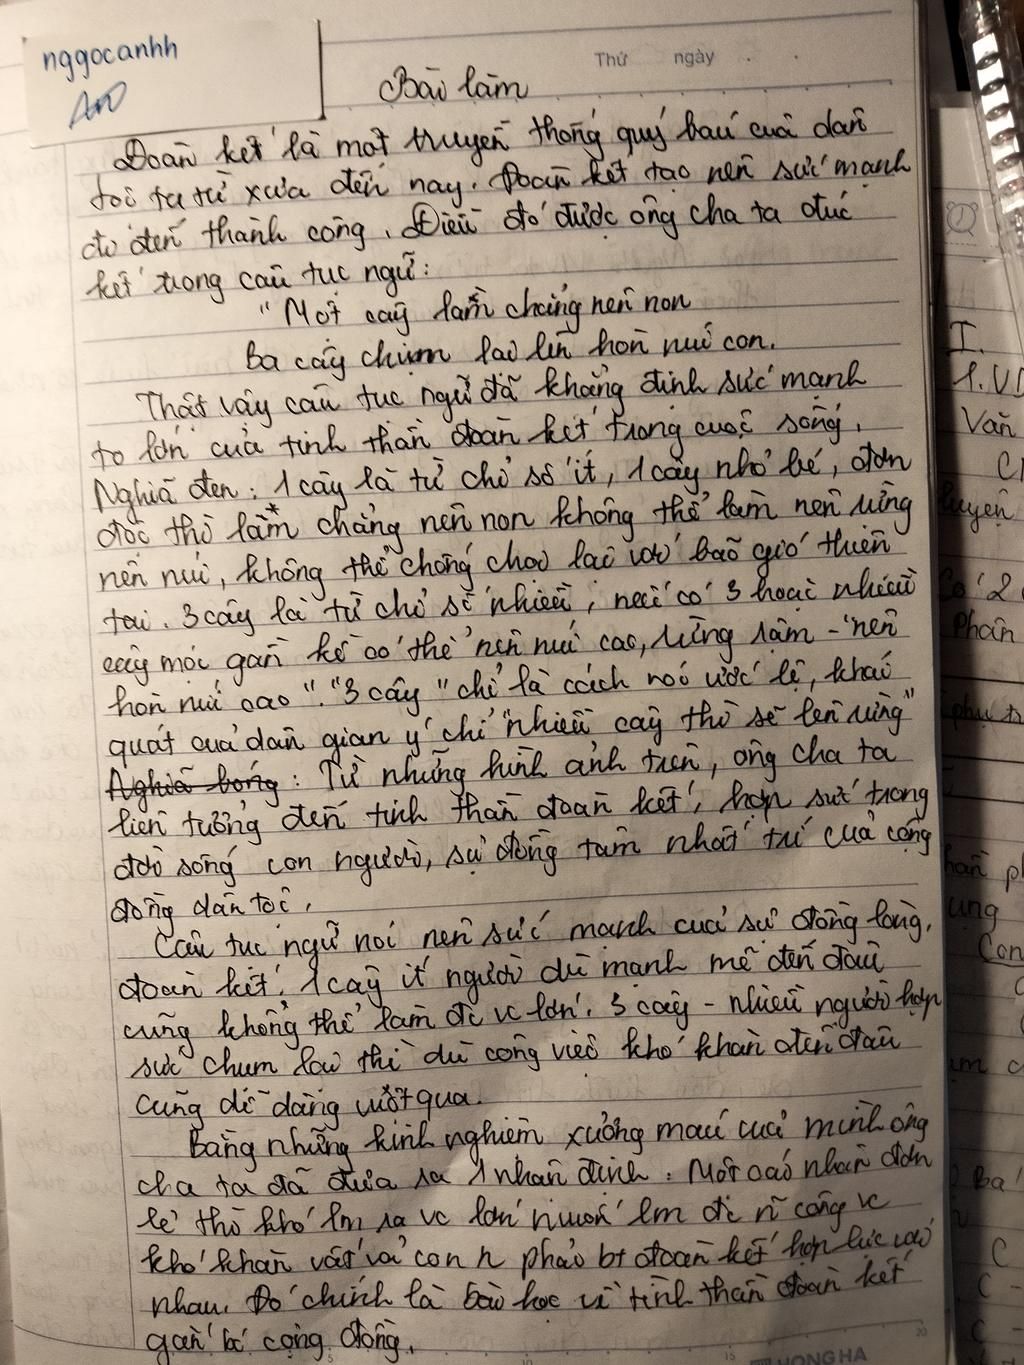 nggocanhh
Thứ ngày
Bài làm
Đoàn kết là một truyền thống quý báu của dân
tộc ta từ xưa đến nay. Đoàn kết tạo nên sức mạnh
đi đến thành công. Điều đó được ông cha ta đúc
kết trong câu tục ngữ:
"Một cây làm chẳng nên non
Ba cây chụm lại lên hòn núi con.
Thật vậy câu tục ngữ đã khẳng định sức mạnh
to lớn của tinh thần đoàn kết trong cuộc sống.
Nghĩa đen: 1 cây là từ chỉ số ít, 1 cây nhỏ bé, đơn
độc thì làm chẳng nên non không thể làm nên rừng
nên núi, không thể chống chọi lại với bão gió thiên
tai. 3 cây là từ chỉ số nhiều, nếu có 3 hoặc nhiều
cây mọc gần kề có thể nên núi cao, rừng rậm - "nên
hòn núi cao". "3 cây" chỉ là cách nói ước lệ, khái
quát của dân gian ý chỉ "nhiều cây thì sẽ lên rừng"
Nghĩa bóng: Từ những hình ảnh trên, ông cha ta
liên tưởng đến tinh thần đoàn kết, hợp sức trong
đời sống con người, sự đồng tâm nhất trí của cộng
đồng dân tộc.
Câu tục ngữ nói nên sức mạnh của sự đồng lòng,
đoàn kết. 1 cây ít người dù mạnh mẽ đến đâu
cũng không thể làm đc vc lớn. 3 cây - nhiều người hợp
sức chụm lại thì dù công việc khó khăn đến đâu
cũng dễ dàng vượt qua.
Bằng những kinh nghiệm xương máu của mình ông
cha ta đã đưa ra 1 nhận định: Một cá nhân đơn
lẻ thì khó lm ra vc lớn muốn lm đc n~ công vc
khó khăn vất vả con n phải bt đoàn kết hợp lực với
nhau. Đó chính là bài học về tinh thần đoàn kết
gắn bó cộng đồng.
I.
Văn
Con
HONG HA